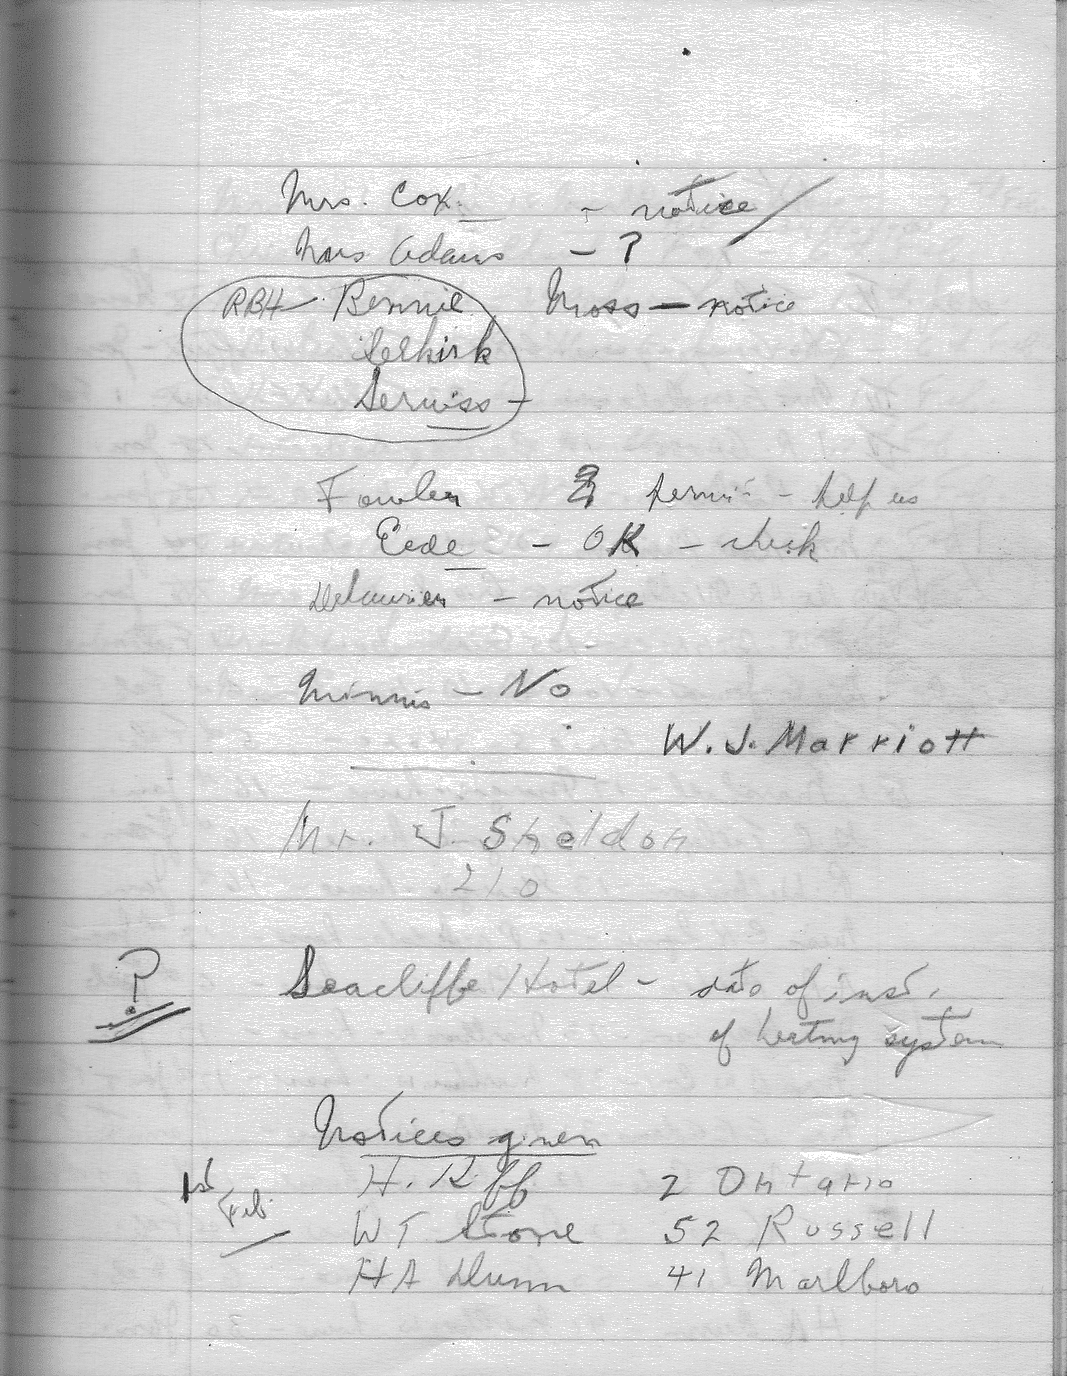 Mrs. Cox. - notice
Mrs Adams - ?
RBH - Rennie Moss - notice
Selkirk
Serviss -
Fowler permit - help us
Eede - OK - check
Delaurier - notice
Minnis - No
W. J. Marriott
Mr. J. Sheldon
210
? Seacliffe Hotel - date of inst.
of heating system
Notices given
1st Feb H. Riff 2 Ontario
WT Stone 52 Russell
HA Dunn 41 Marlboro